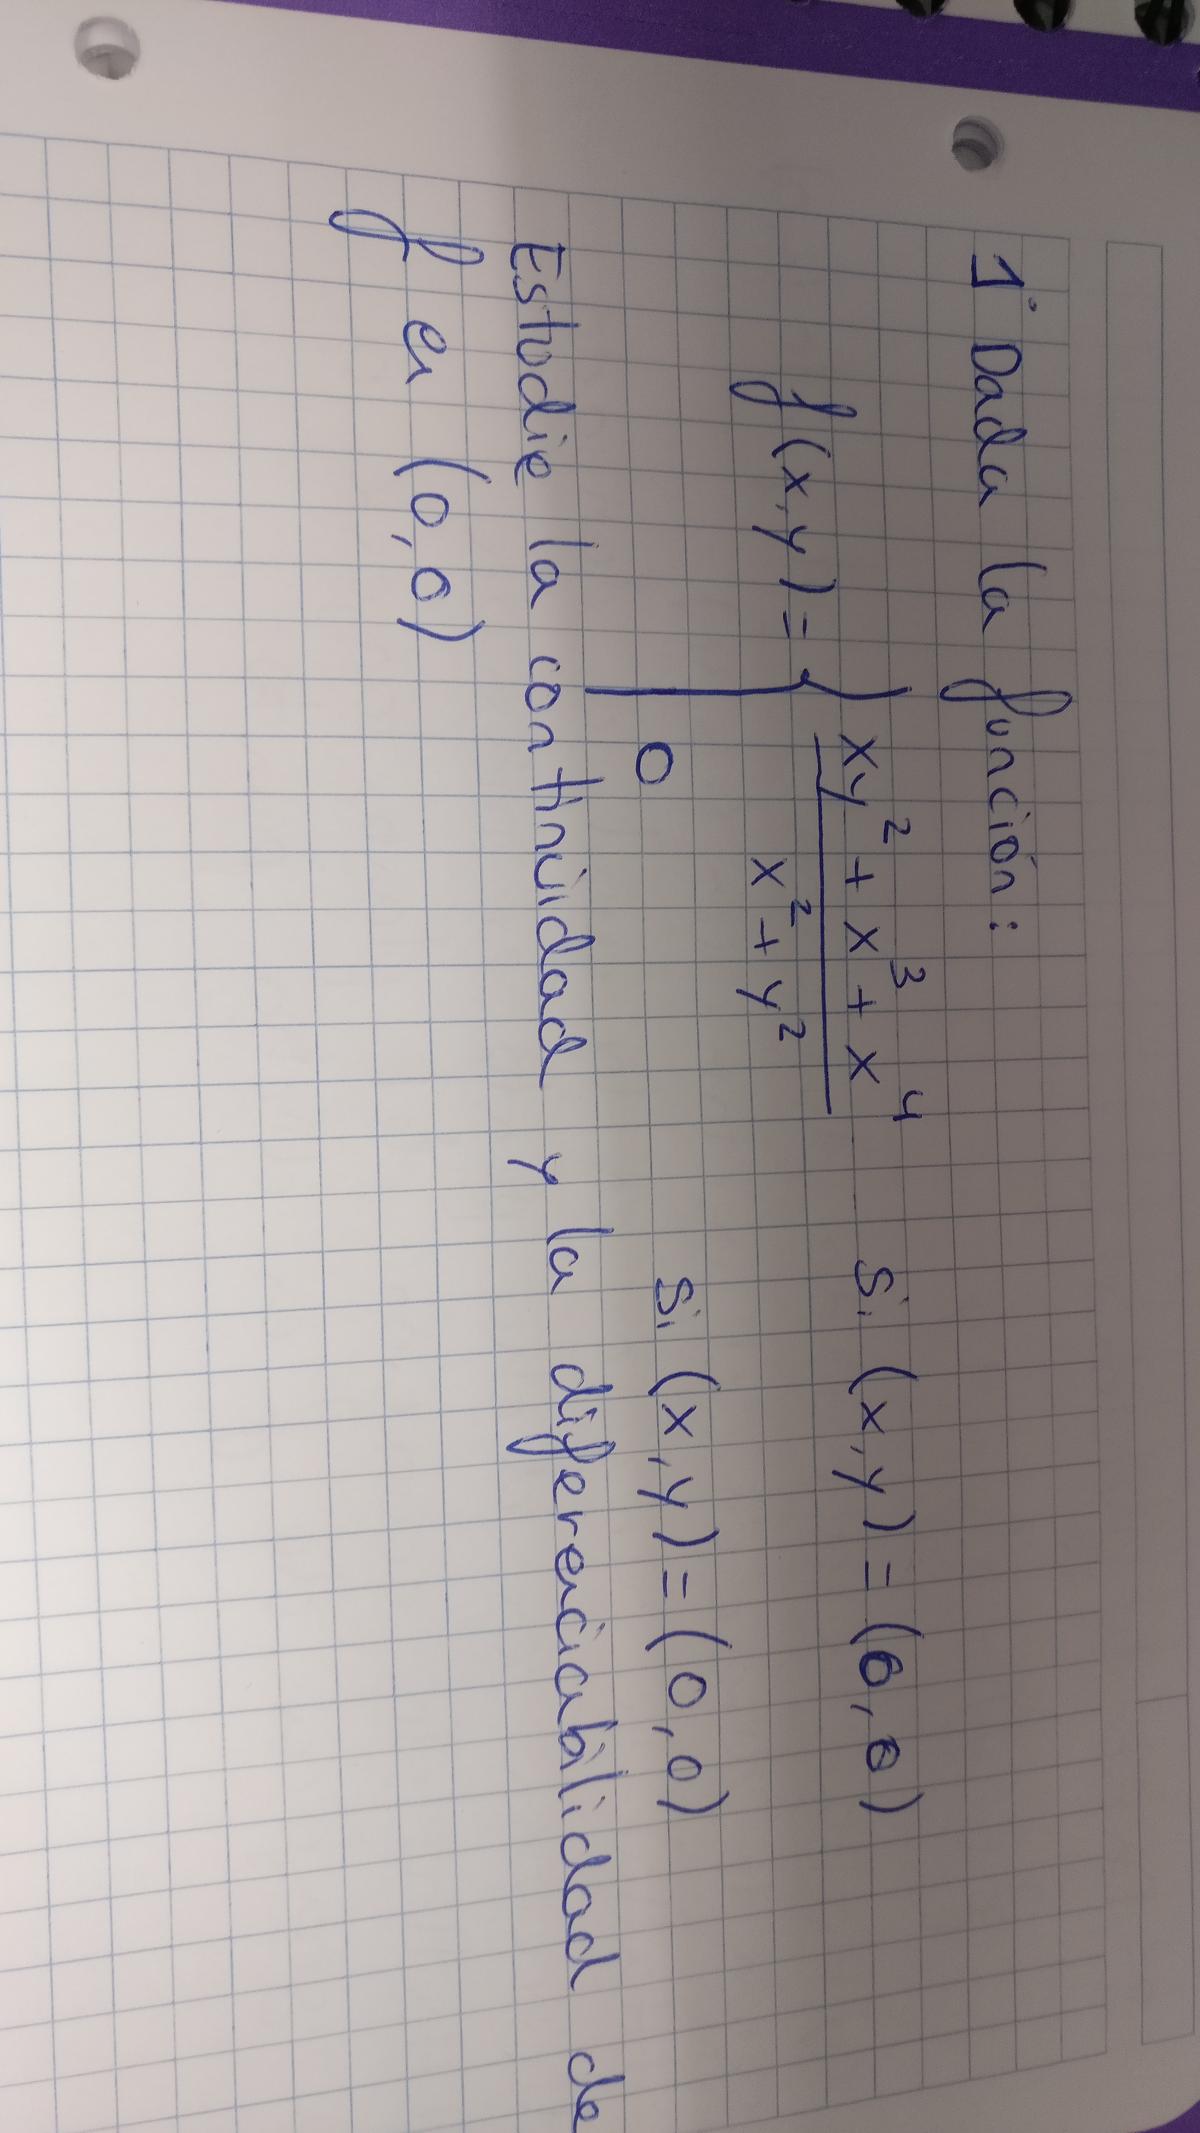 1° Dada la función:
f(x,y) = { xy² + x³ + x⁴ / x² + y² Si (x,y) = (0,0)
0 Si (x,y) = (0,0)
Estudie la continuidad y la diferenciabilidad de
f en (0,0)